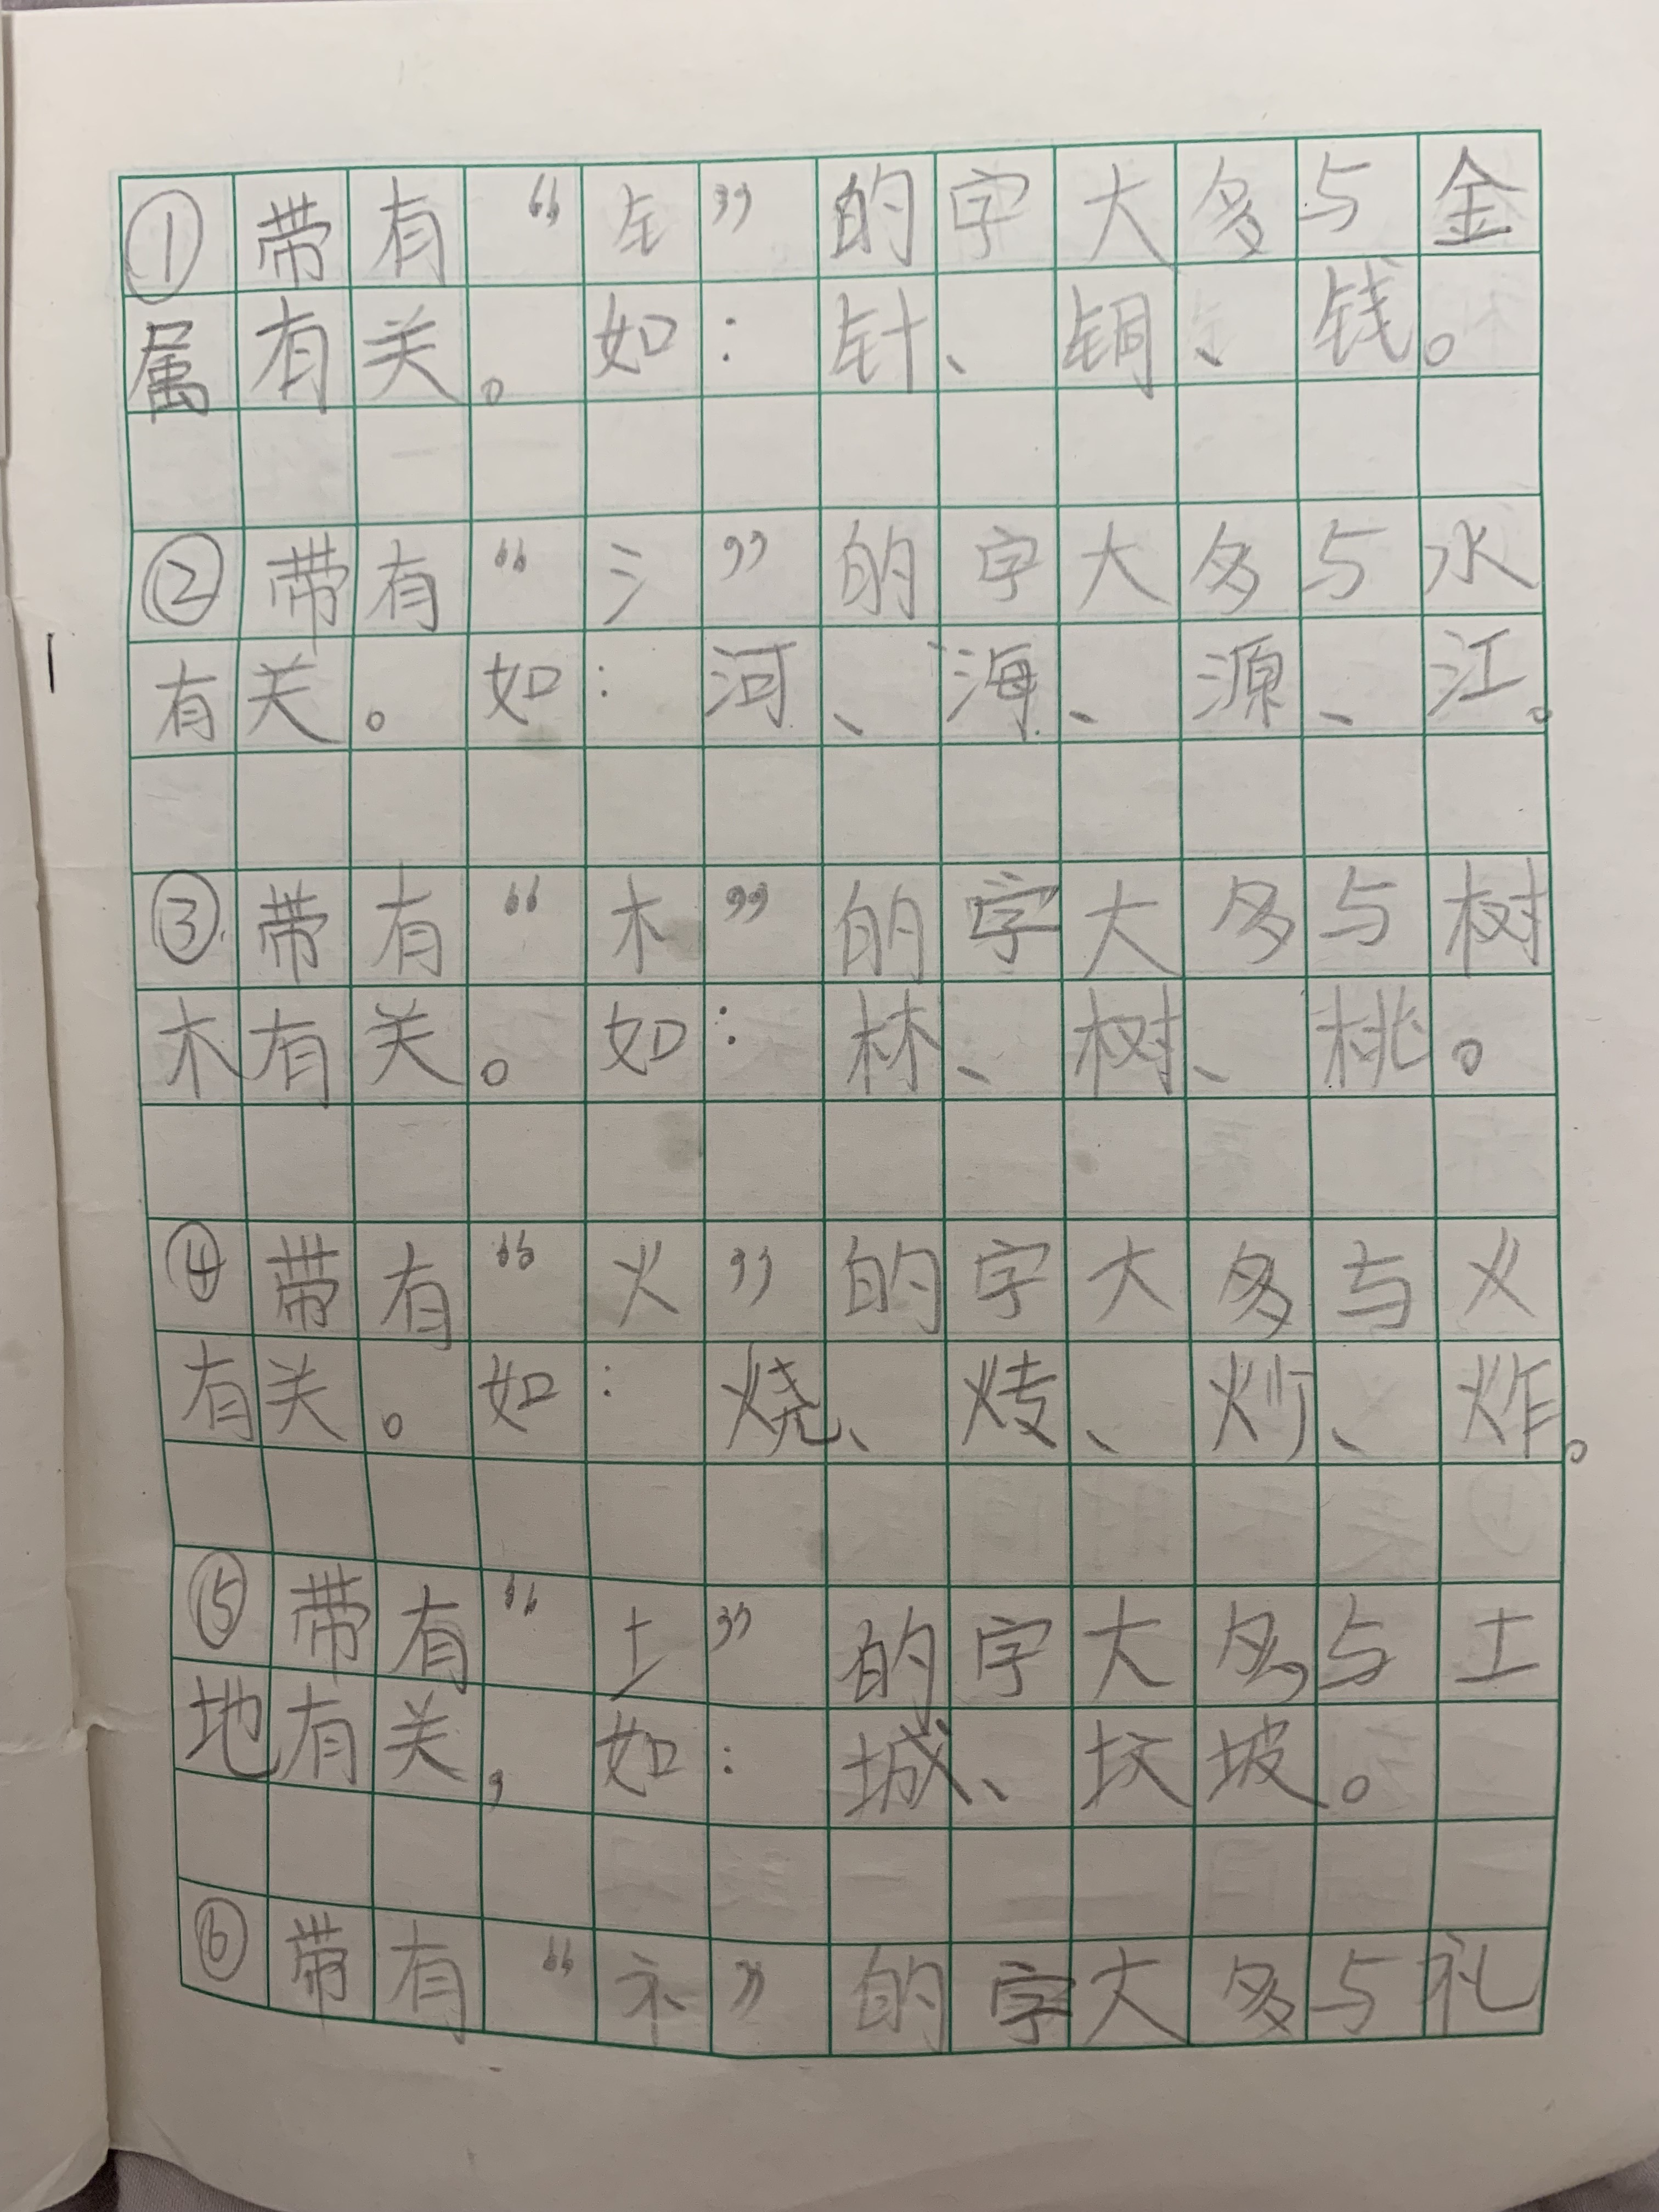 ①带有“钅”的字大多与金
属有关。如：针、铜、钱。
②带有“氵”的字大多与水
有关。如：河、海、源、江。
③带有“木”的字大多与树
木有关。如：林、树、桃。
④带有“火”的字大多与火
有关。如：烧、烤、炒、炸。
⑤带有“土”的字大多与土
地有关，如：城、坟坡。
⑥带有“礻”的字大多与礼